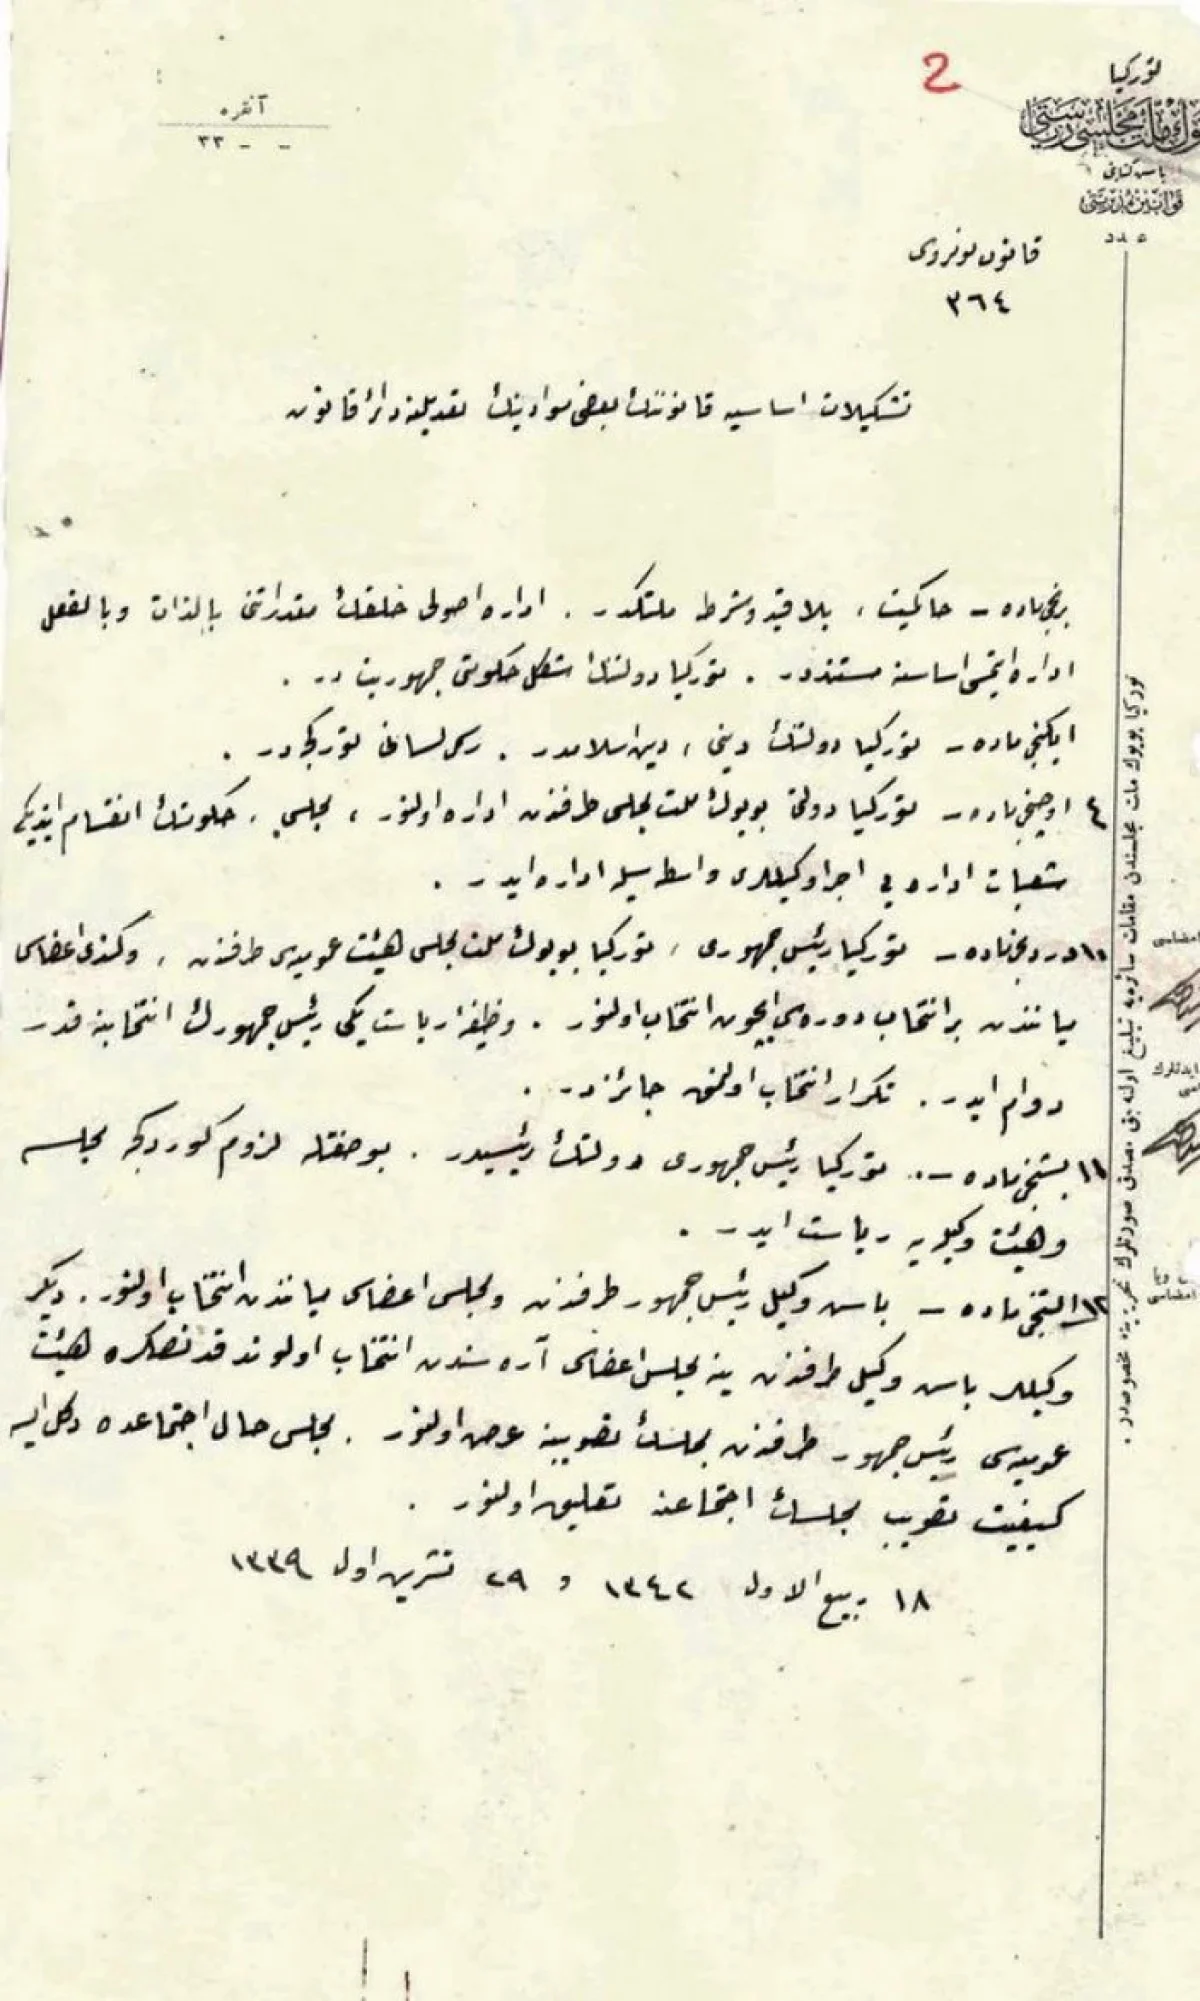 2
توركيا
بيوك ملت مجلسى رياستى
باش كتابتى
قوانين مديريتى
عدد
آنقره
- - ٣٣
قانون نومروسى
٣٦٤
تشكيلات اساسيه قانوننك بعض موادينك تعديلنه دائر قانون
برنجى ماده – حاكميت ، بلا قيد و شرط ملتكدر . اداره اصولى خلقك مقدراتنى بالذات و بالفعل
اداره ايتمسى اساسنه مستنددر . توركيا دولتنك شكل حكومتى جمهوريت در .
ايكنجى ماده – توركيا دولتنك دينى ، دين اسلامدر . رسمى لسانى توركجه در .
٤ اوچنجى ماده – توركيا دولتى بويوك ملت مجلسى طرفندن اداره اولنور ، مجلس ، حكومتك انقسام ايتديكى
شعبات اداره يى اجرا وكيللرى واسطه سيله اداره ايدر .
١٠ دردنجى ماده – توركيا رئيس جمهورى ، توركيا بويوك ملت مجلسى هيئت عموميه سى طرفندن ، و كندى اعضاسى
مياننـدن بر انتخاب دوره سى ايچون انتخاب اولنور . وظيفۀ رياست يكى رئيس جمهورك انتخابنه قدر
دوام ايدر . تكرار انتخاب اولنمق جائزدر .
١١ بشنجى ماده – توركيا رئيس جمهورى دولتك رئيسيدر . بو صفتله لزوم كوردكجه مجلسه
و هيئت وكيله يه رياست ايدر .
١٢ التنجى ماده – باش وكيل رئيس جمهور طرفندن و مجلس اعضاسى مياننـدن انتخاب اولنور . ديكر
وكيللر باش وكيل طرفندن ينه مجلس اعضاسى آره سندن انتخاب اولوندقدنصكره هيئت
عموميه سى رئيس جمهور طرفندن مجلسك تصويبنه عرض اولنور . مجلس حال اجتماعده دكل ايسه
كيفيت تصويب مجلسك اجتماعنه تعليق اولنور .
١٨ ربيع الاول ١٣٤٢ و ٢٩ تشرين اول ١٣٣٩
توركيا بويوك ملت مجلسندن مقامات سائره يه تبليغ اولنه جق مصدق صورتلرك تحريرينه مخصوصدر .
امضاسى
ايدنلرك
امضاسى